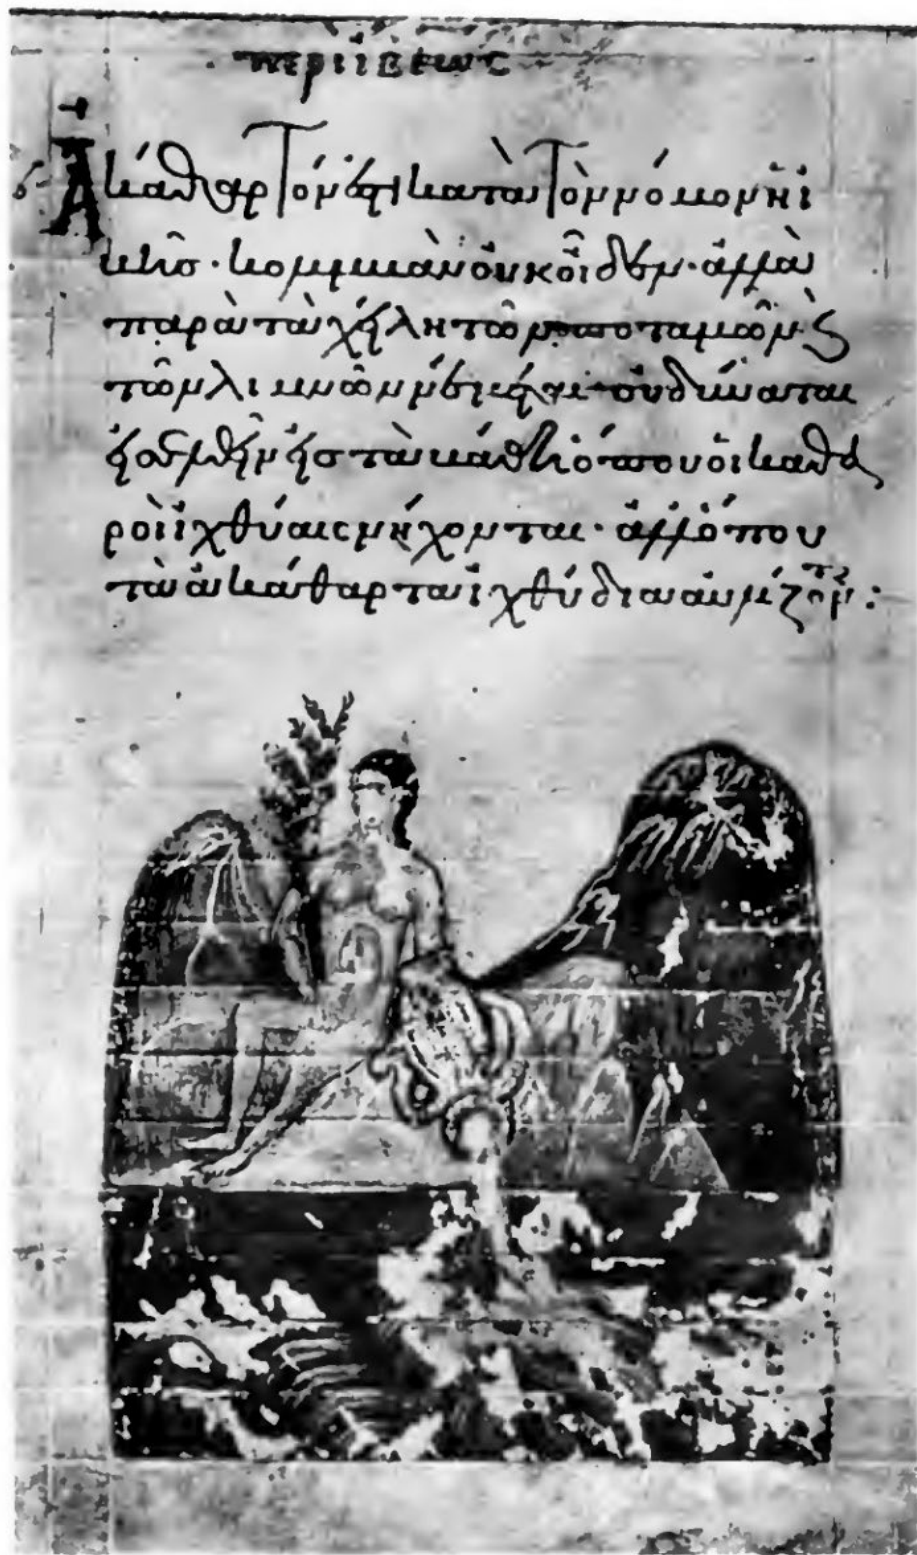 περι ϊβεως
Ἀκάθαρτόν ἐστι κατὰ τὸν νόμον ἡ ἴ
βις · κολυμβὰν οὐκ οἶδεν · ἀλλὰ
παρὰ τὰ χείλη τῶν ποταμῶν ϗ
τῶν λιμνῶν οὐ δύναται
εἰσελθεῖν εἰς τὰ βάθη ὅπου οἱ καθα
ροὶ ἰχθύαις νήχονται · ἀλλ ὅπου
τὰ ἀκάθαρτα ἰχθύδια αὐλίζονται :